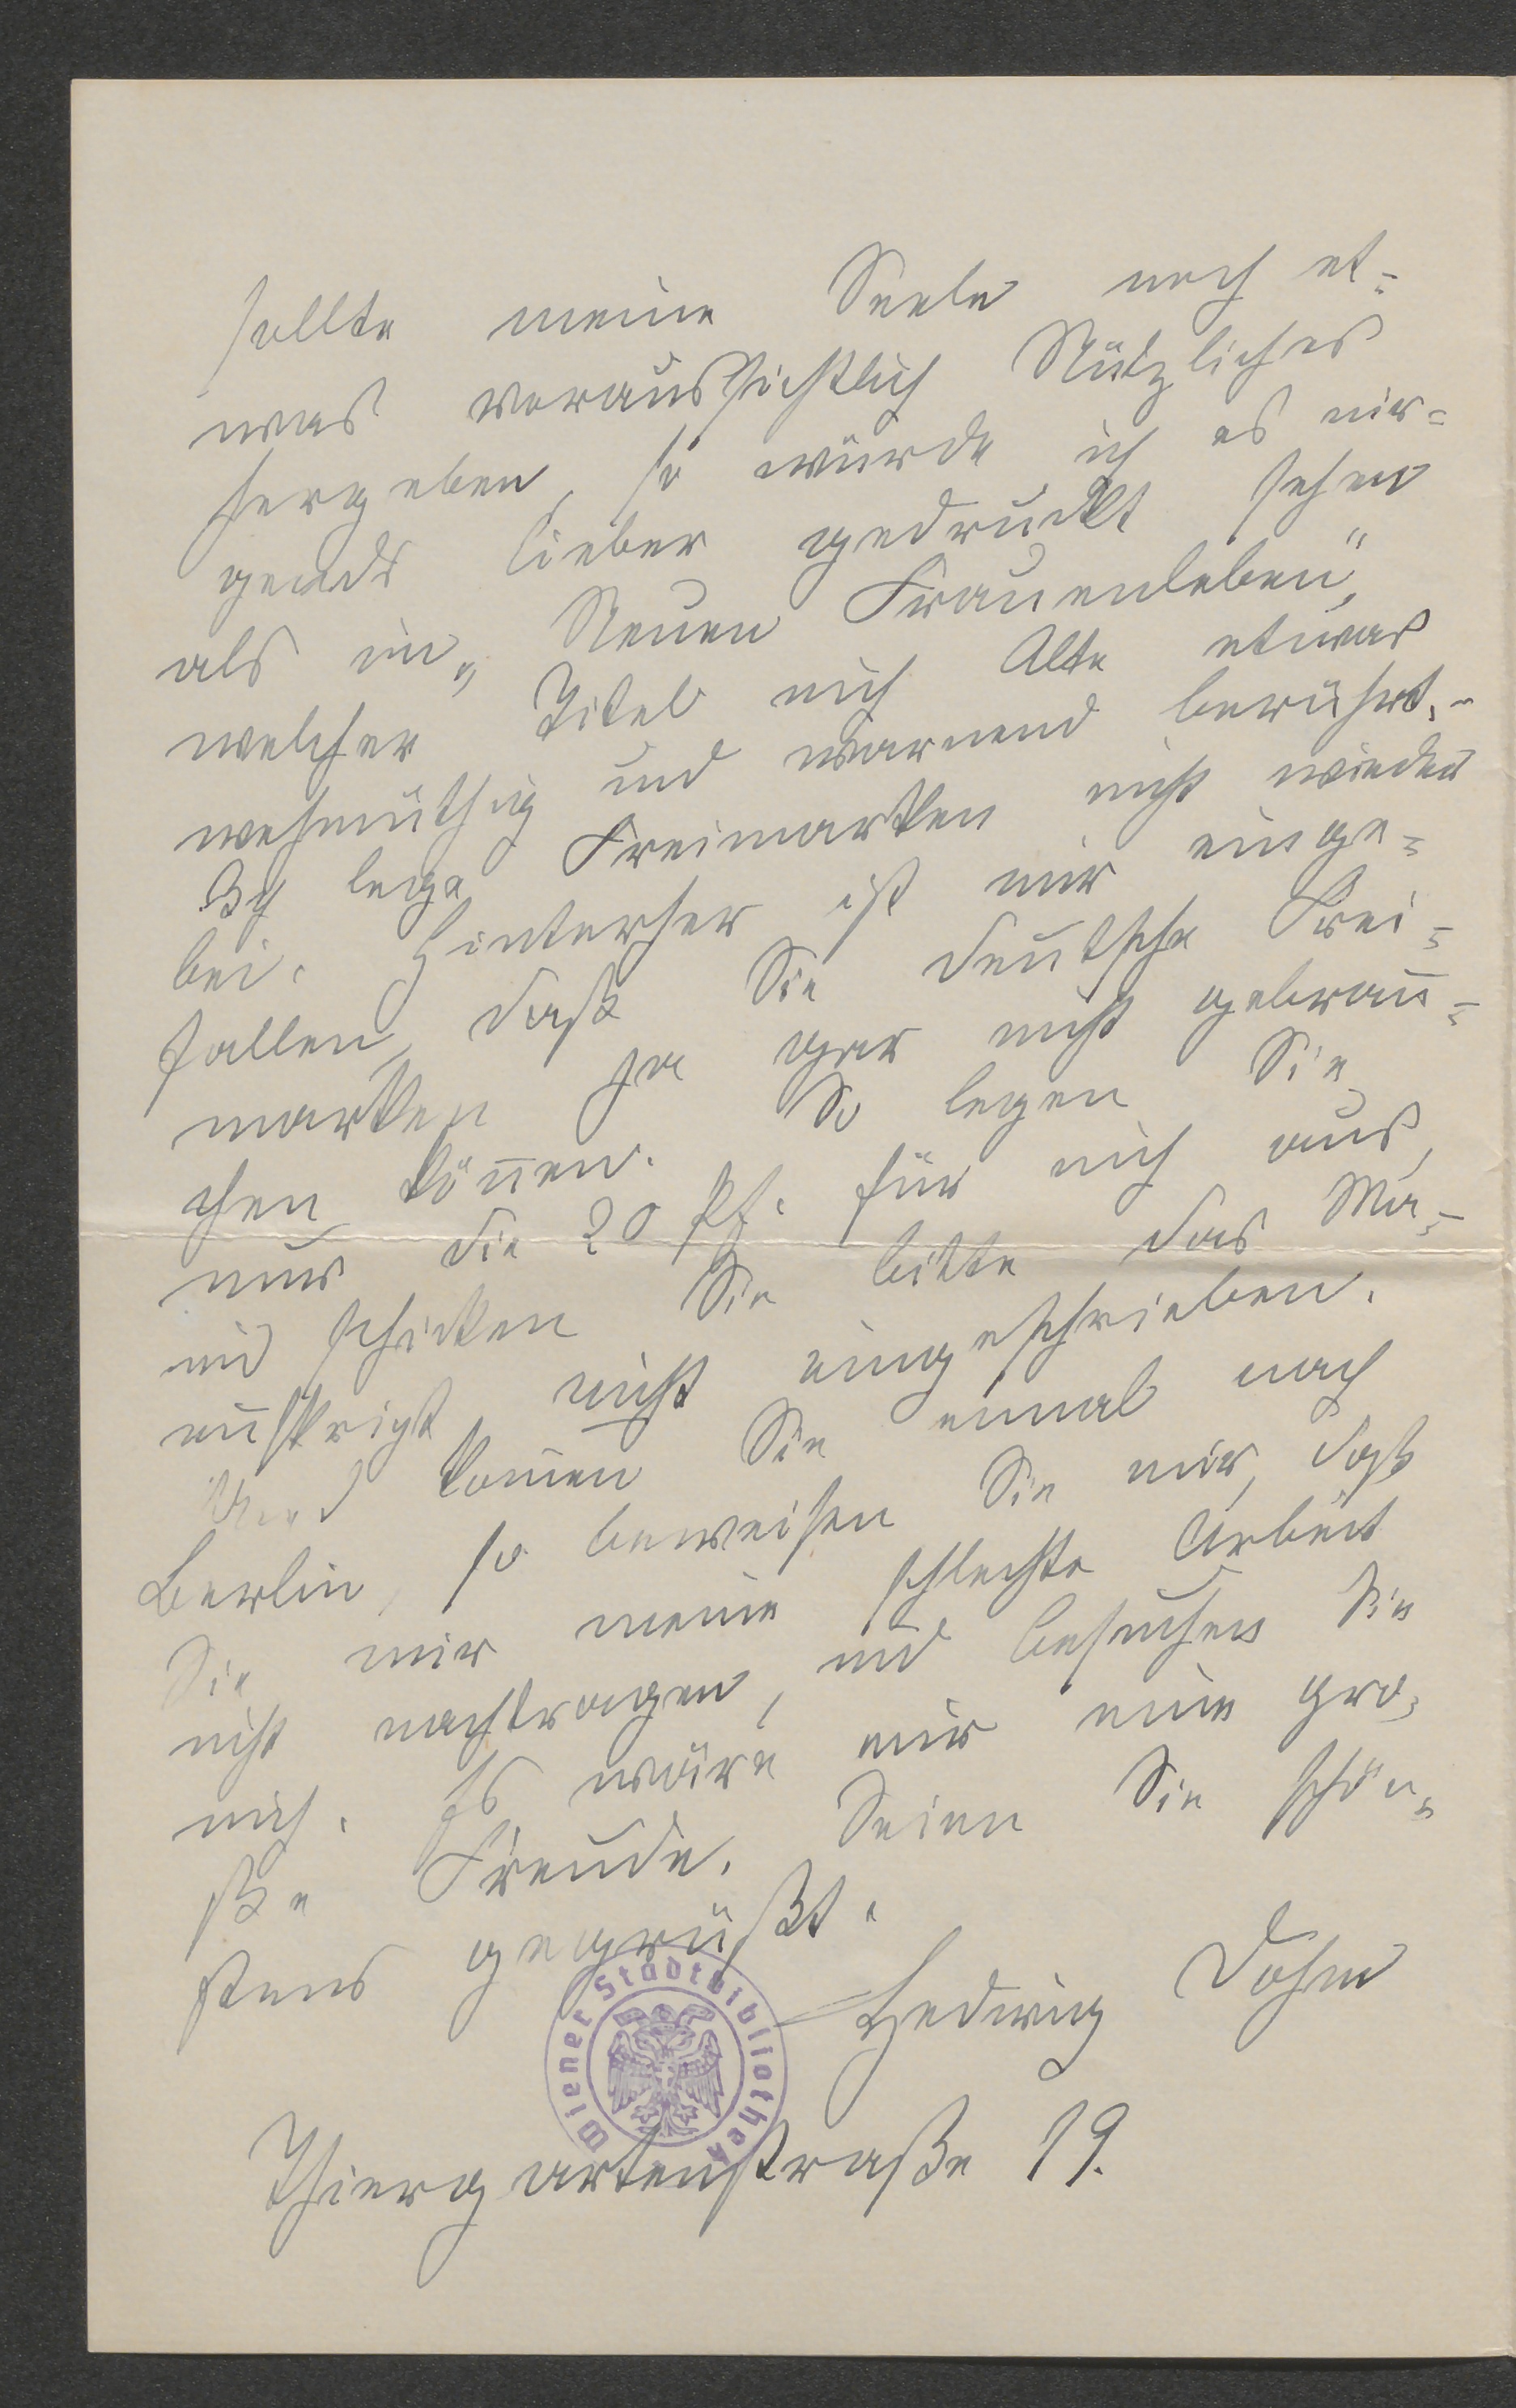 sollte meine Seele noch et-
was voraussichtlich Nützliches
hergeben, so würde ich es nir-
gends lieber gedruckt sehen
als im „Neuen Frauenleben“,
welcher Titel mich Alte etwas
wehmüthig und warnend berührt. –
Ich lege Freimarken nicht wieder
bei. Hinterher ist mir einge-
fallen, daß Sie deutsche Frei-
marken ja gar nicht gebrau-
chen können. So legen Sie
nur die 20 Pf. für mich aus,
und schicken Sie bitte das Ma-
nuskript nicht eingeschrieben.
Und kommen Sie einmal nach
Berlin, so beweisen Sie mir, daß
Sie mir meine schlechte Arbeit
nicht nachtragen, und besuchen Sie
mich. Es wäre mir eine gro-
ße Freude. Seien Sie schön-
stens gegrüßt.
Hedwig Dohm
Wiener Stadtbibliothek
Thiergartenstraße 19.